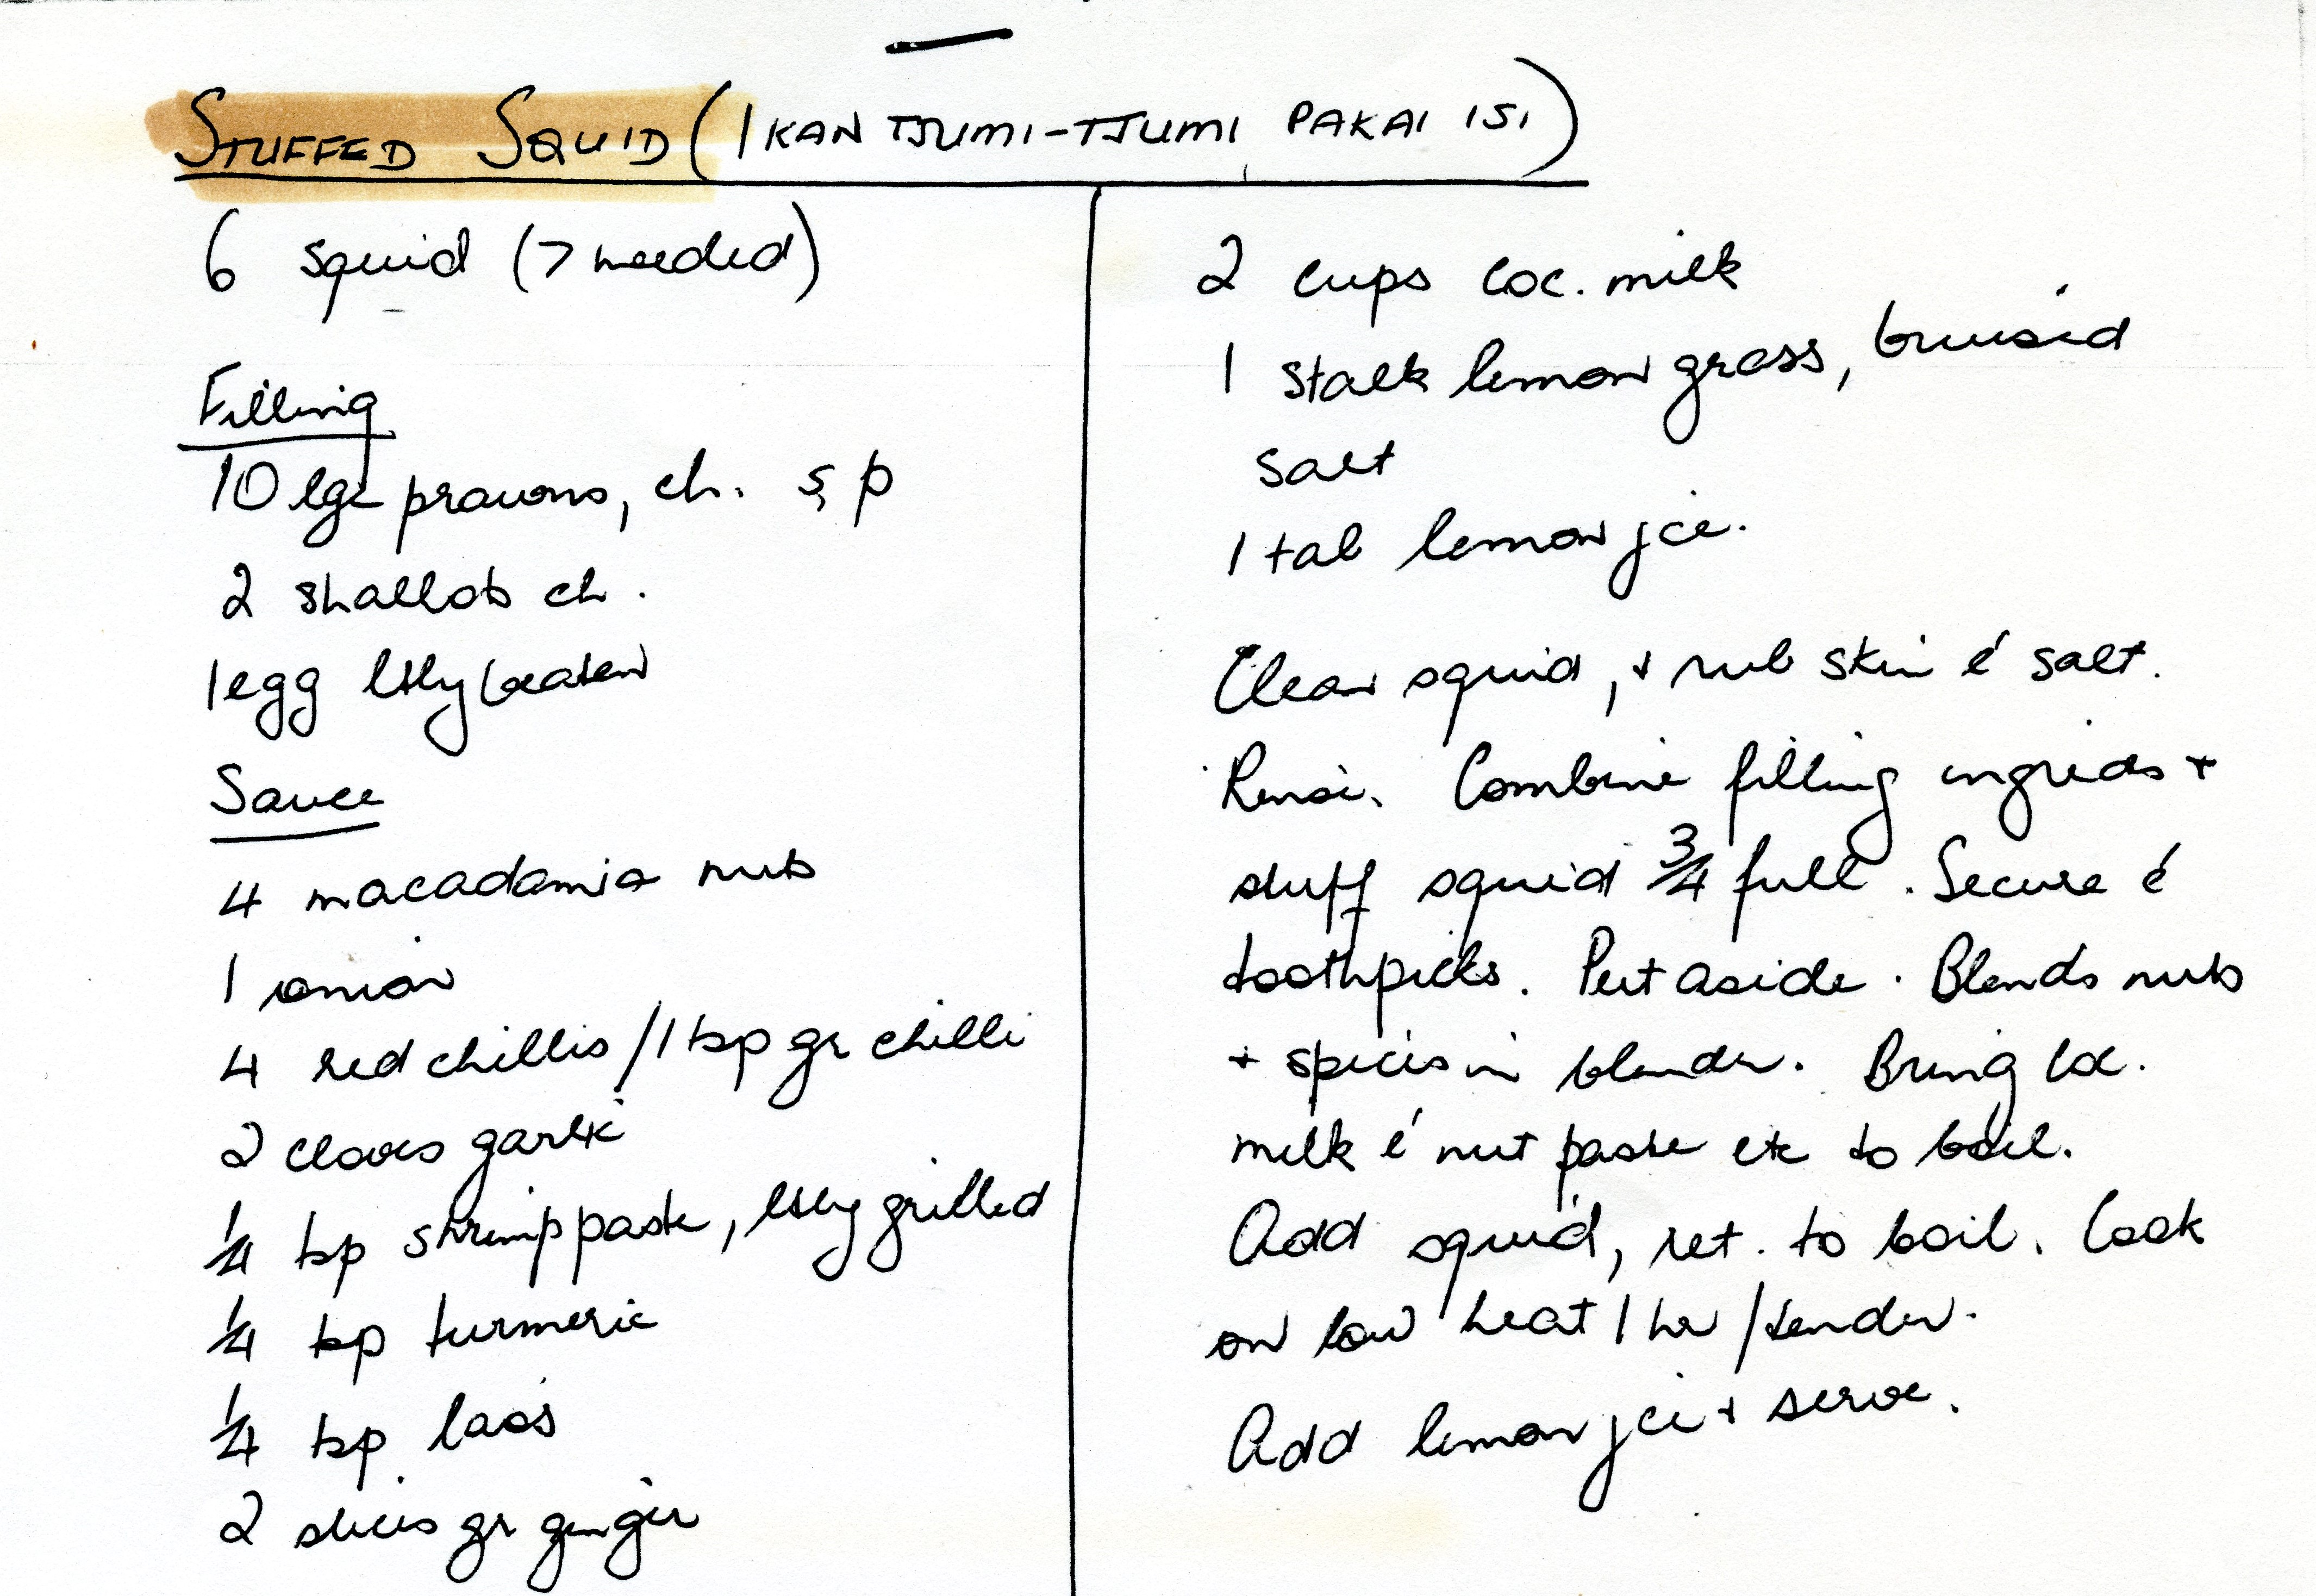 STUFFED SQUID (IKAN TJUMI-TJUMI PAKAI ISI)
6 squid (> needed)
Filling
10 lge prawns, ch. s, p
2 shallots ch.
1 egg ltly beaten
Sauce
4 macadamia nuts
1 onion
4 red chillis / 1 tsp gr chilli
2 cloves garlic
1/4 tsp shrimp paste, ltly grilled
1/4 tsp turmeric
1/4 tsp laos
2 slices gr ginger
2 cups coc. milk
1 stalk lemon grass, bruised
salt
1 tab lemon jce.
Clean squid, + rub skin c̄ salt.
Rinse. Combine filling ingreds +
stuff squid 3/4 full. Secure c̄
toothpicks. Put aside. Blends nuts
+ spices in blender. Bring coc.
milk c̄ nut paste etc to boil.
Add squid, ret. to boil. Cook
on low heat 1 hr / tender.
Add lemon jce + serve.